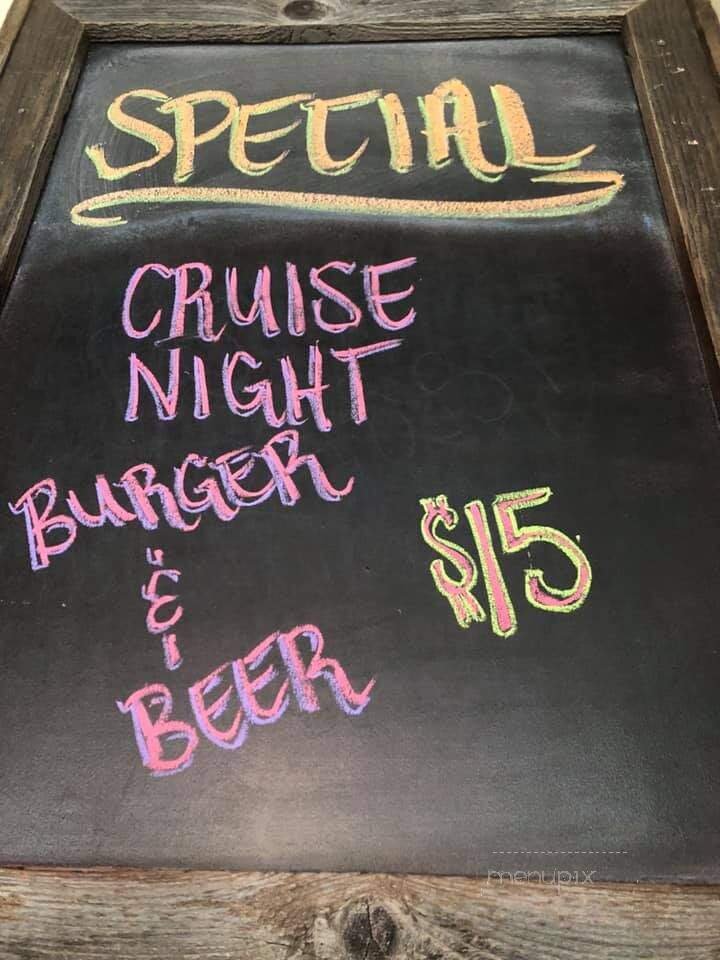 SPECIAL
CRUISE
NIGHT
BURGER
&
BEER
$15
menupix